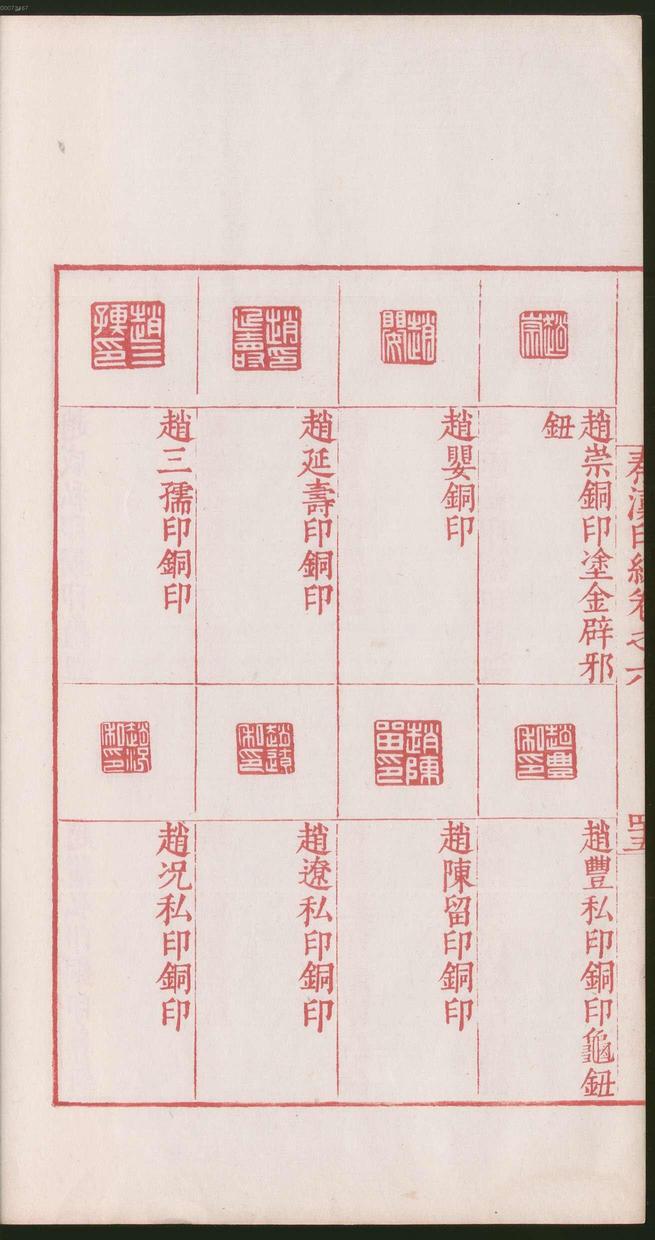 趙崇銅印塗金辟邪
鈕
趙嬰銅印
趙延壽印銅印
趙三孺印銅印
趙豐私印銅印龜鈕
趙陳留印銅印
趙遼私印銅印
趙況私印銅印
秦漢印統卷之六
四五